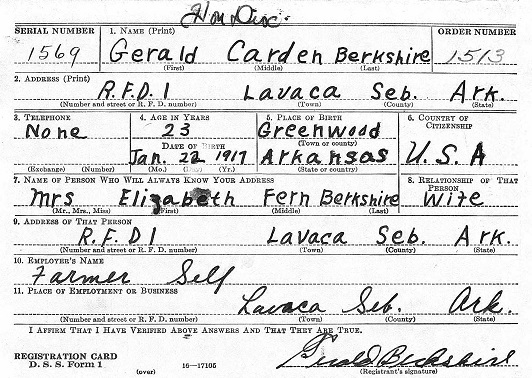 Hon Disc.
SERIAL NUMBER 1. NAME (Print) ORDER NUMBER
1569 Gerald Carden Berkshire 1513
(First) (Middle) (Last)
2. ADDRESS (Print)
R.F.D. 1 Lavaca Seb. Ark.
(Number and street or R. F. D. number) (Town) (County) (State)
3. TELEPHONE 4. AGE IN YEARS 5. PLACE OF BIRTH 6. COUNTRY OF CITIZENSHIP
None 23 Greenwood
(Town or county)
DATE OF BIRTH
Jan. 22 1917 Arkansas U.S.A
(Exchange) (Number) (Mo.) (Day) (Yr.) (State or country)
7. NAME OF PERSON WHO WILL ALWAYS KNOW YOUR ADDRESS 8. RELATIONSHIP OF THAT PERSON
Mrs Elizabeth Fern Berkshire Wife
(Mr., Mrs., Miss) (First) (Middle) (Last)
9. ADDRESS OF THAT PERSON
R.F.D 1 Lavaca Seb. Ark.
(Number and street or R. F. D. number) (Town) (County) (State)
10. EMPLOYER'S NAME
Farmer Self
11. PLACE OF EMPLOYMENT OR BUSINESS
Lavaca Seb. Ark.
(Number and street or R. F. D. number) (Town) (County) (State)
I AFFIRM THAT I HAVE VERIFIED ABOVE ANSWERS AND THAT THEY ARE TRUE.
REGISTRATION CARD
D. S. S. Form 1 (over) 16—17105
Gerald Berkshire
(Registrant's signature)